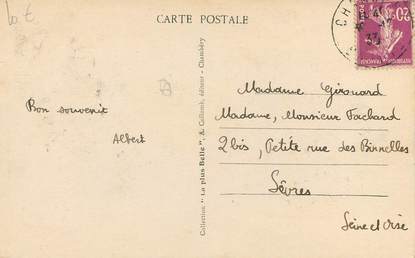 CARTE POSTALE
Bon souvenir
Albert
Collection "La plus Belle", & Collomb, éditeur - Chambéry
Madame Girouard
Madame, Monsieur Fachard
2 bis, Petite rue des Binnelles
Sèvres
Seine et Oise
20c